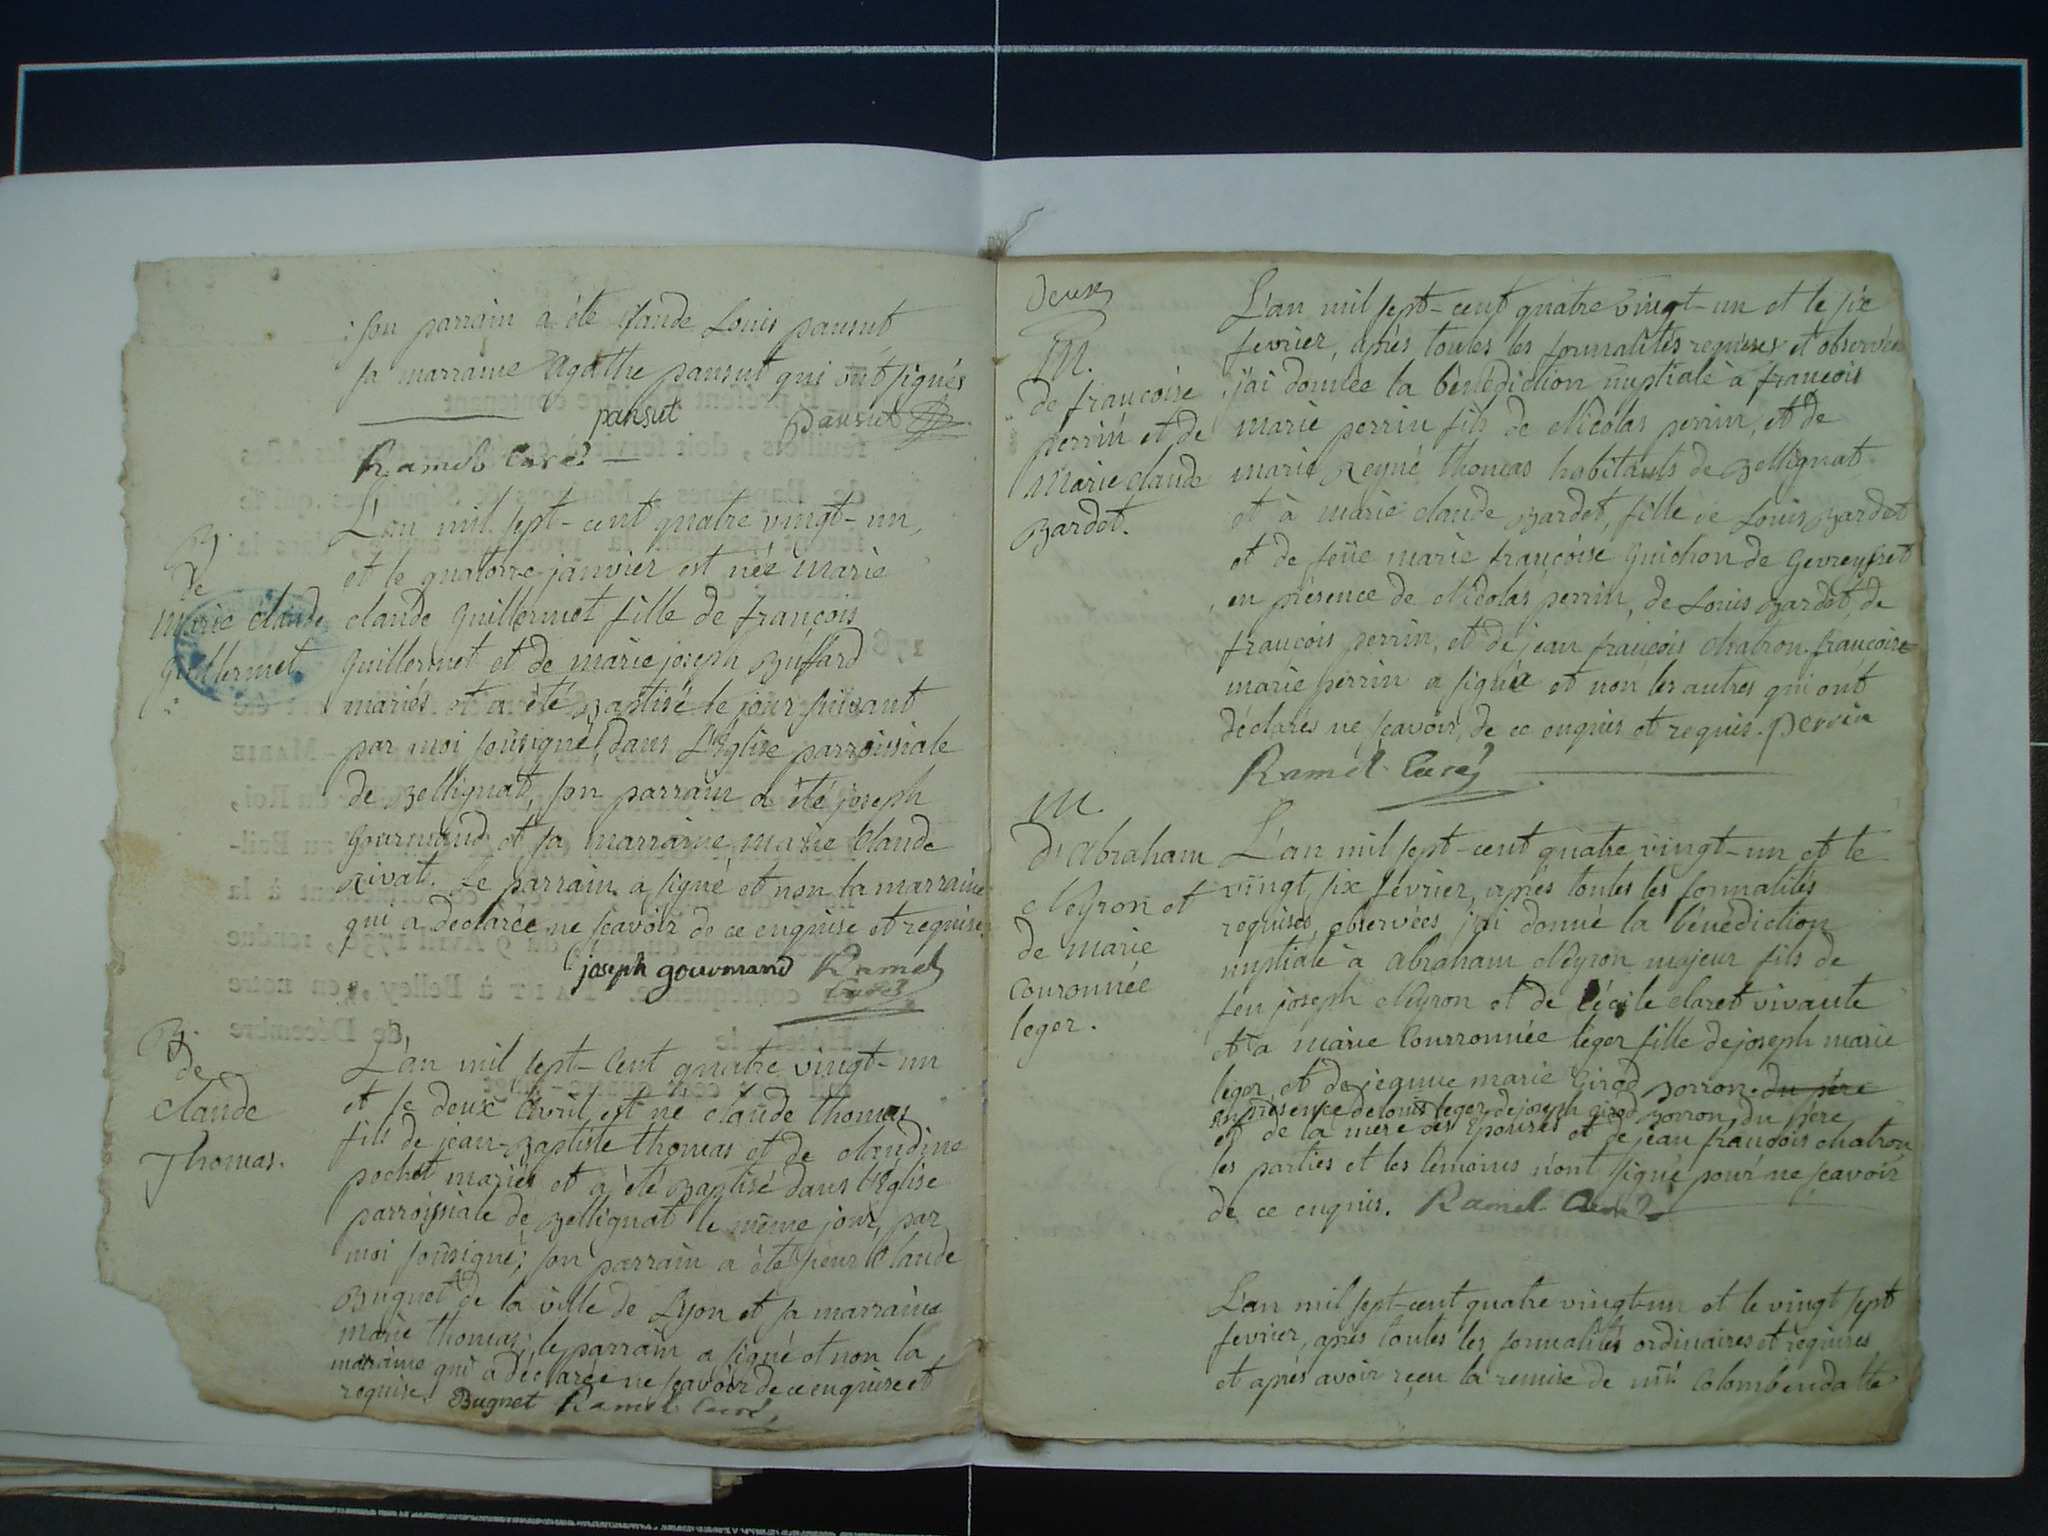 son parrain a été claude Louis pansut
sa marraine Agathe pansut qui ont signés
pansut Pansut
Ramel Curé
B.
de
marie claude
guillermet
L'an mil sept-cent quatre vingt-un,
et le quatorze janvier est née marie
claude guillermet fille de françois
guillermet et de marie joseph Buffard
mariés et a été Baptisé le jour suivant
par moi soûsigné, dans L'église parroissiale
de Bellignat, son parrain a été joseph
gourmand et sa marraine marie Claude
Rivat. Le parrain a signé et non la marraine
qui a declarée ne sçavoir de ce enquise et requise.
joseph gourmand Ramel
Curé
B.
de
claude
Thomas.
L'an mil sept-Cent quatre vingt-un
et le deux Avril est né claude thomas
fils de jean-Baptiste thomas et de claudine
pochet mariés et a été Baptisé dans l'Eglise
parroissiale de Bellignat le même jour, par
moi soûsigné; son parrain a été sieur Claude
Bugnet de la ville de Lyon et sa marraine
marie thomas; le parrain a signé et non la
marraine qui a déclarée ne sçavoir de ce enquise et
requise. Bugnet Ramel Curé
deux
M.
de françoise
perrin et de
Marie claude
Bardet.
L'an mil sept-cent quatre vingt-un et le six
fevrier, après toutes les formalités requises et observées
j'ai donnée la bénédiction nuptiale à francois
marie perrin fils de Nicolas perrin, et de
marie Reyné thomas habitants de Bellignat
et à marie claude Bardet, fille de Louis Bardet
et de feüe marie françoise guichon de gevreysset
en présence de Nicolas perrin, de Louis Bardet, de
françois perrin, et de jean françois chatron. françoise
marie perrin a signée et non les autres qui ont
déclarés ne sçavoir, de ce enquis et requis. perrin
Ramel Curé
M.
d'Abraham
Neyron et
de marie
Couronnée
leger.
L'an mil sept-cent quatre vingt-un et le
vingt six fevrier, après toutes les formalités
requises, observées, j'ai donné la bénédiction
nuptiale à Abraham Neyron majeur fils de
feu joseph Neyron et de Cécile claret vivante
et à marie Courronnée leger fille de joseph marie
leger et de jeanne marie Girod Borron du père
en présence de Louis leger, de joseph girod Borron, du père
et de la mere des Epouses et de jean francois chatron
les parties et les témoins n'ont signé pour ne sçavoir
de ce enquis. Ramel Curé
L'an mil sept-cent quatre vingt-un et le vingt sept
fevrier, après toutes les formalités ordinaires et requises
et après avoir reçu la remise de Colomb